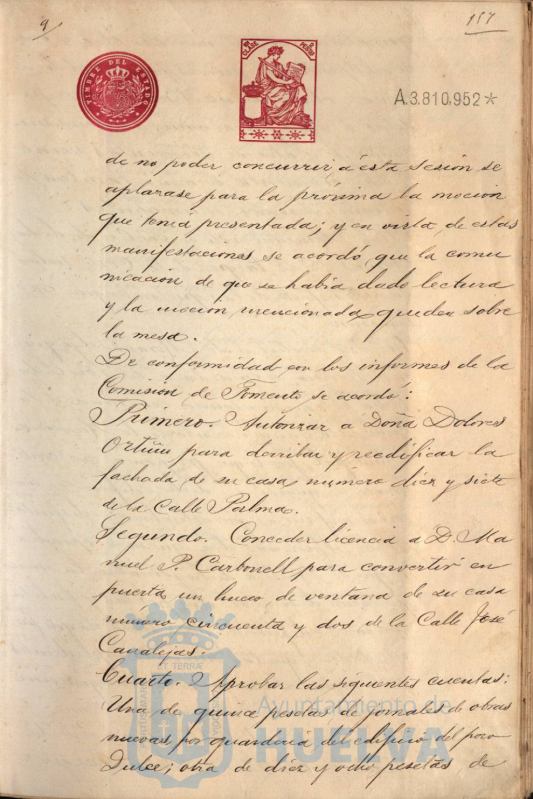 9
157
TIMBRE DEL ESTADO
A.3.810.952*
de no poder concurrir, á ésta sesión se
aplazase para la próxima la moción
que tenia presentada; y en vista de estas
manifestaciones se acordó, que la comu
nicacion de que se habia dado lectura
y la mocion mencionada, queden sobre
la mesa.
De conformidad con los informes de la
Comisión de Fomento se acordó:
Primero. Autorizar a Doña Dolores
Ortiz para derribar y reedificar la
fachada de su casa número diez y siete
de la Calle Palma.
Segundo. Conceder licencia a D. Ma
nuel P. Carbonell para convertir en
puerta un hueco de ventana de su casa
numero cincuenta y dos de la Calle José
Canalejas.
Cuarto. Aprobar las siguientes cuentas:
Una de quince pesetas de jornales de obras
nuevas, por guarderia del edificio del pozo
Dulce; otra de diez y ocho pesetas de
Ayuntamiento de
HUELVA